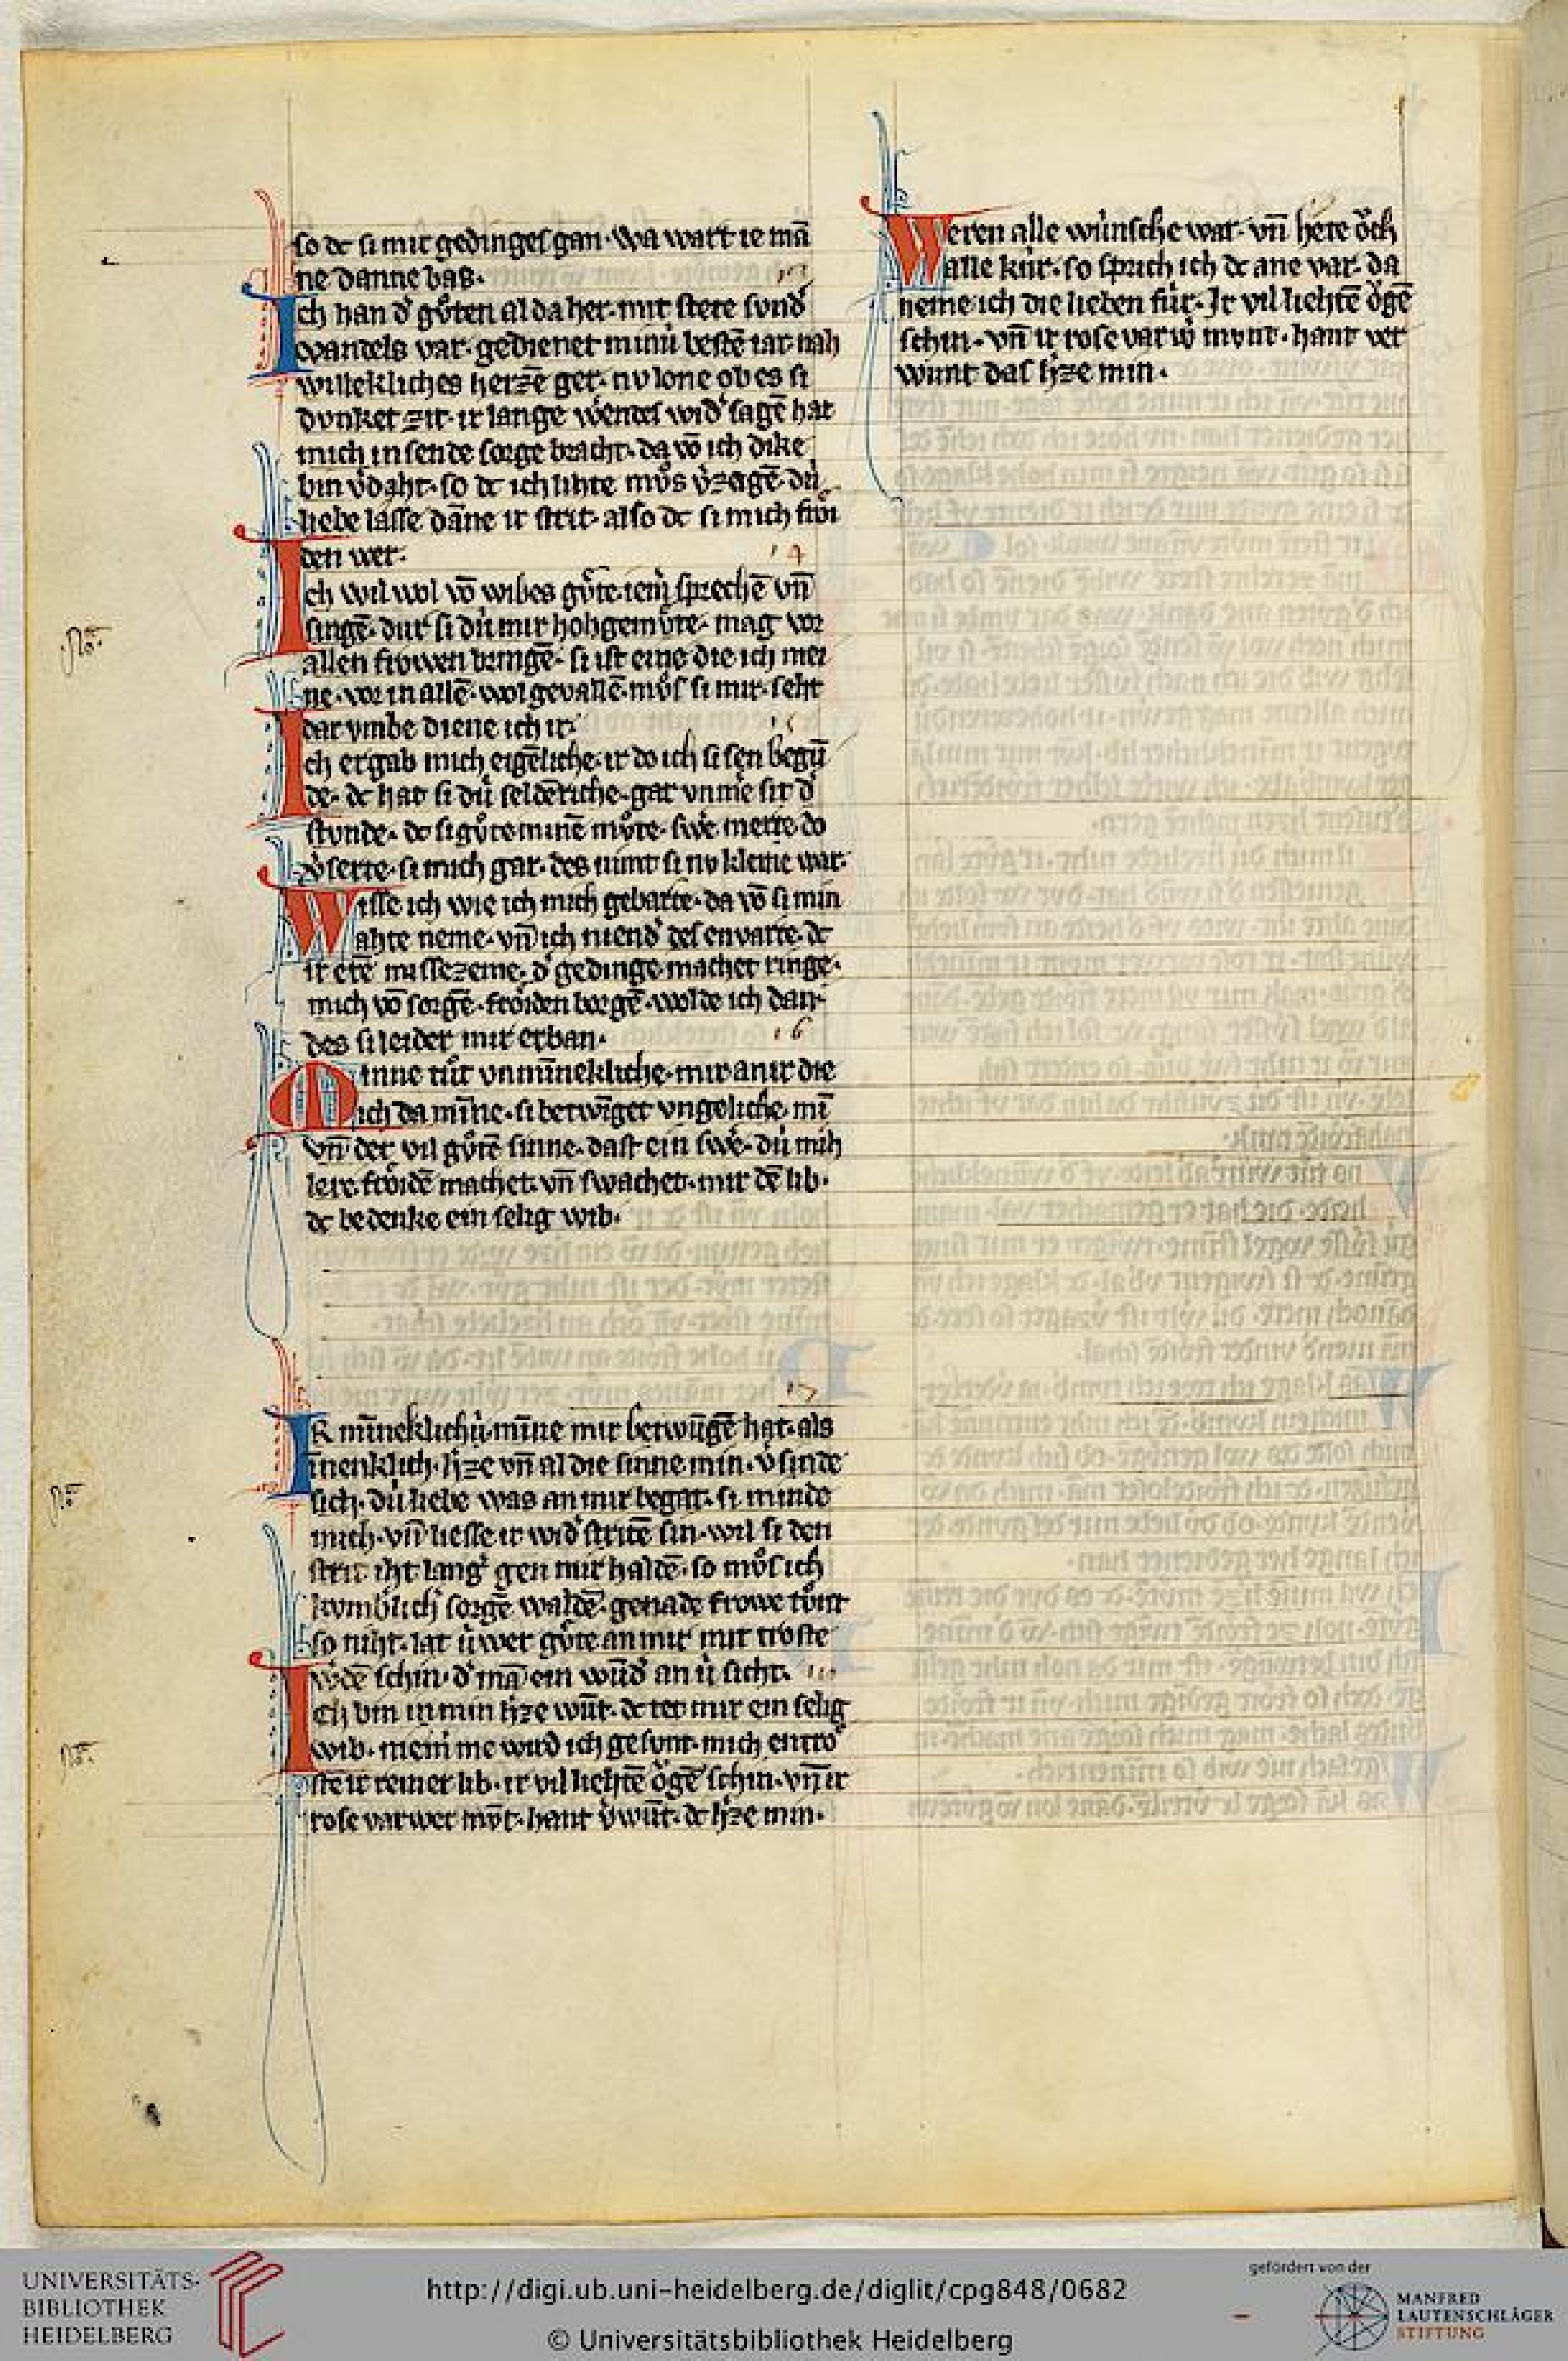 so dc si mir gedinges gan· wa wart ie mā
ne danne bas·
Ich han d͛ gůten al da her· mit stete sund͛
wandels var· gedienet minú bestē iar· nah
willekliches herzē ger· nv lone ob es si
dvnket zit· ir lange wendes wid͛ sagē hat
mich in sende sorge bracht· da vō ich dike
bin v͛daht· so dc ich lihte mv̊s v͛zagē· dú
liebe lasse dāne ir strit· also dc si mich frôi
den wer·
14
Ich wil wol vō wibes gůte iem͛ sprechē vn̄
singē· dur si dú mir hohgemůte· mag vor
allen frowen bringē· si ist eine die ich mei
ne· vor in allē· wol gevallē· mv̊s si mir· seht
dar vmbe diene ich ir·
15
Ich ergab mich eigēliche· ir do ich si sen begū
de· dc hat si dú seldēriche· gar vnm͛e sit d͛
stvnde· do si gůte minē můte· swe merte do
v͛serte· si mich gar· des nimt si nv kleine war·
Wisse ich wie ich mich gebarte· da vō si min
wahte neme· vn̄ ich niend͛ des envarte· dc
ir etē missezeme· d͛ gedinge machet ringe·
mich vō sorgē· frôiden borgē· wolde ich dan·
des si leider mir erban·
16
Minne tůt vnmīnekliche· mir an ir die
ich da mīne· si betwīget vngeliche· mī
vn̄ der vil gůtē sinne· dast ein swe͛· dú mih
lere· frôidē machet· vn̄ swachet· mir dē lib·
dc bedenke ein selig wib·
17
IR mīneklichú· mīne mir betwūgē hat· als
inenklich· h͛ze vn̄ al die sinne min· v͛sinde
sich· dú liebe was an mir begat· si mindo
mich· vn̄ liesse ir wid͛ stritē sin· wil si den
strit iht lang͛ gen mir haldē· so mv̊s ich
kvmb͛lich͛ sorgē waldē· genade frowe tůnt
so niht· lat úwer gůte an mir mit troste
w͛dē schin· d͛ mā ein wūd͛ an ú siht·
Ich bin in min h͛ze wūt· dc tet mir ein selig
wib· niem͛ me wird ich gesunt· mich entrô
ste ir reiner lib· ir vil liehtē ôgē schin· vn̄ ir
rose varwer mv̄t· hant v͛wūt· dc h͛ze min·
Weren alle wúnsche war· vn̄ hete ôch
alle kúr· so sprich ich dc ane var· da
neme ich die lieben fúr· Ir vil liehtē ôgē
schin· vn̄ ir rose var w͛ mvnt· hant ver
wunt das h͛ze min·
UNIVERSITÄTS-
BIBLIOTHEK
HEIDELBERG
http://digi.ub.uni-heidelberg.de/diglit/cpg848/0682
© Universitätsbibliothek Heidelberg
gefördert von der
MANFRED
LAUTENSCHLÄGER
STIFTUNG